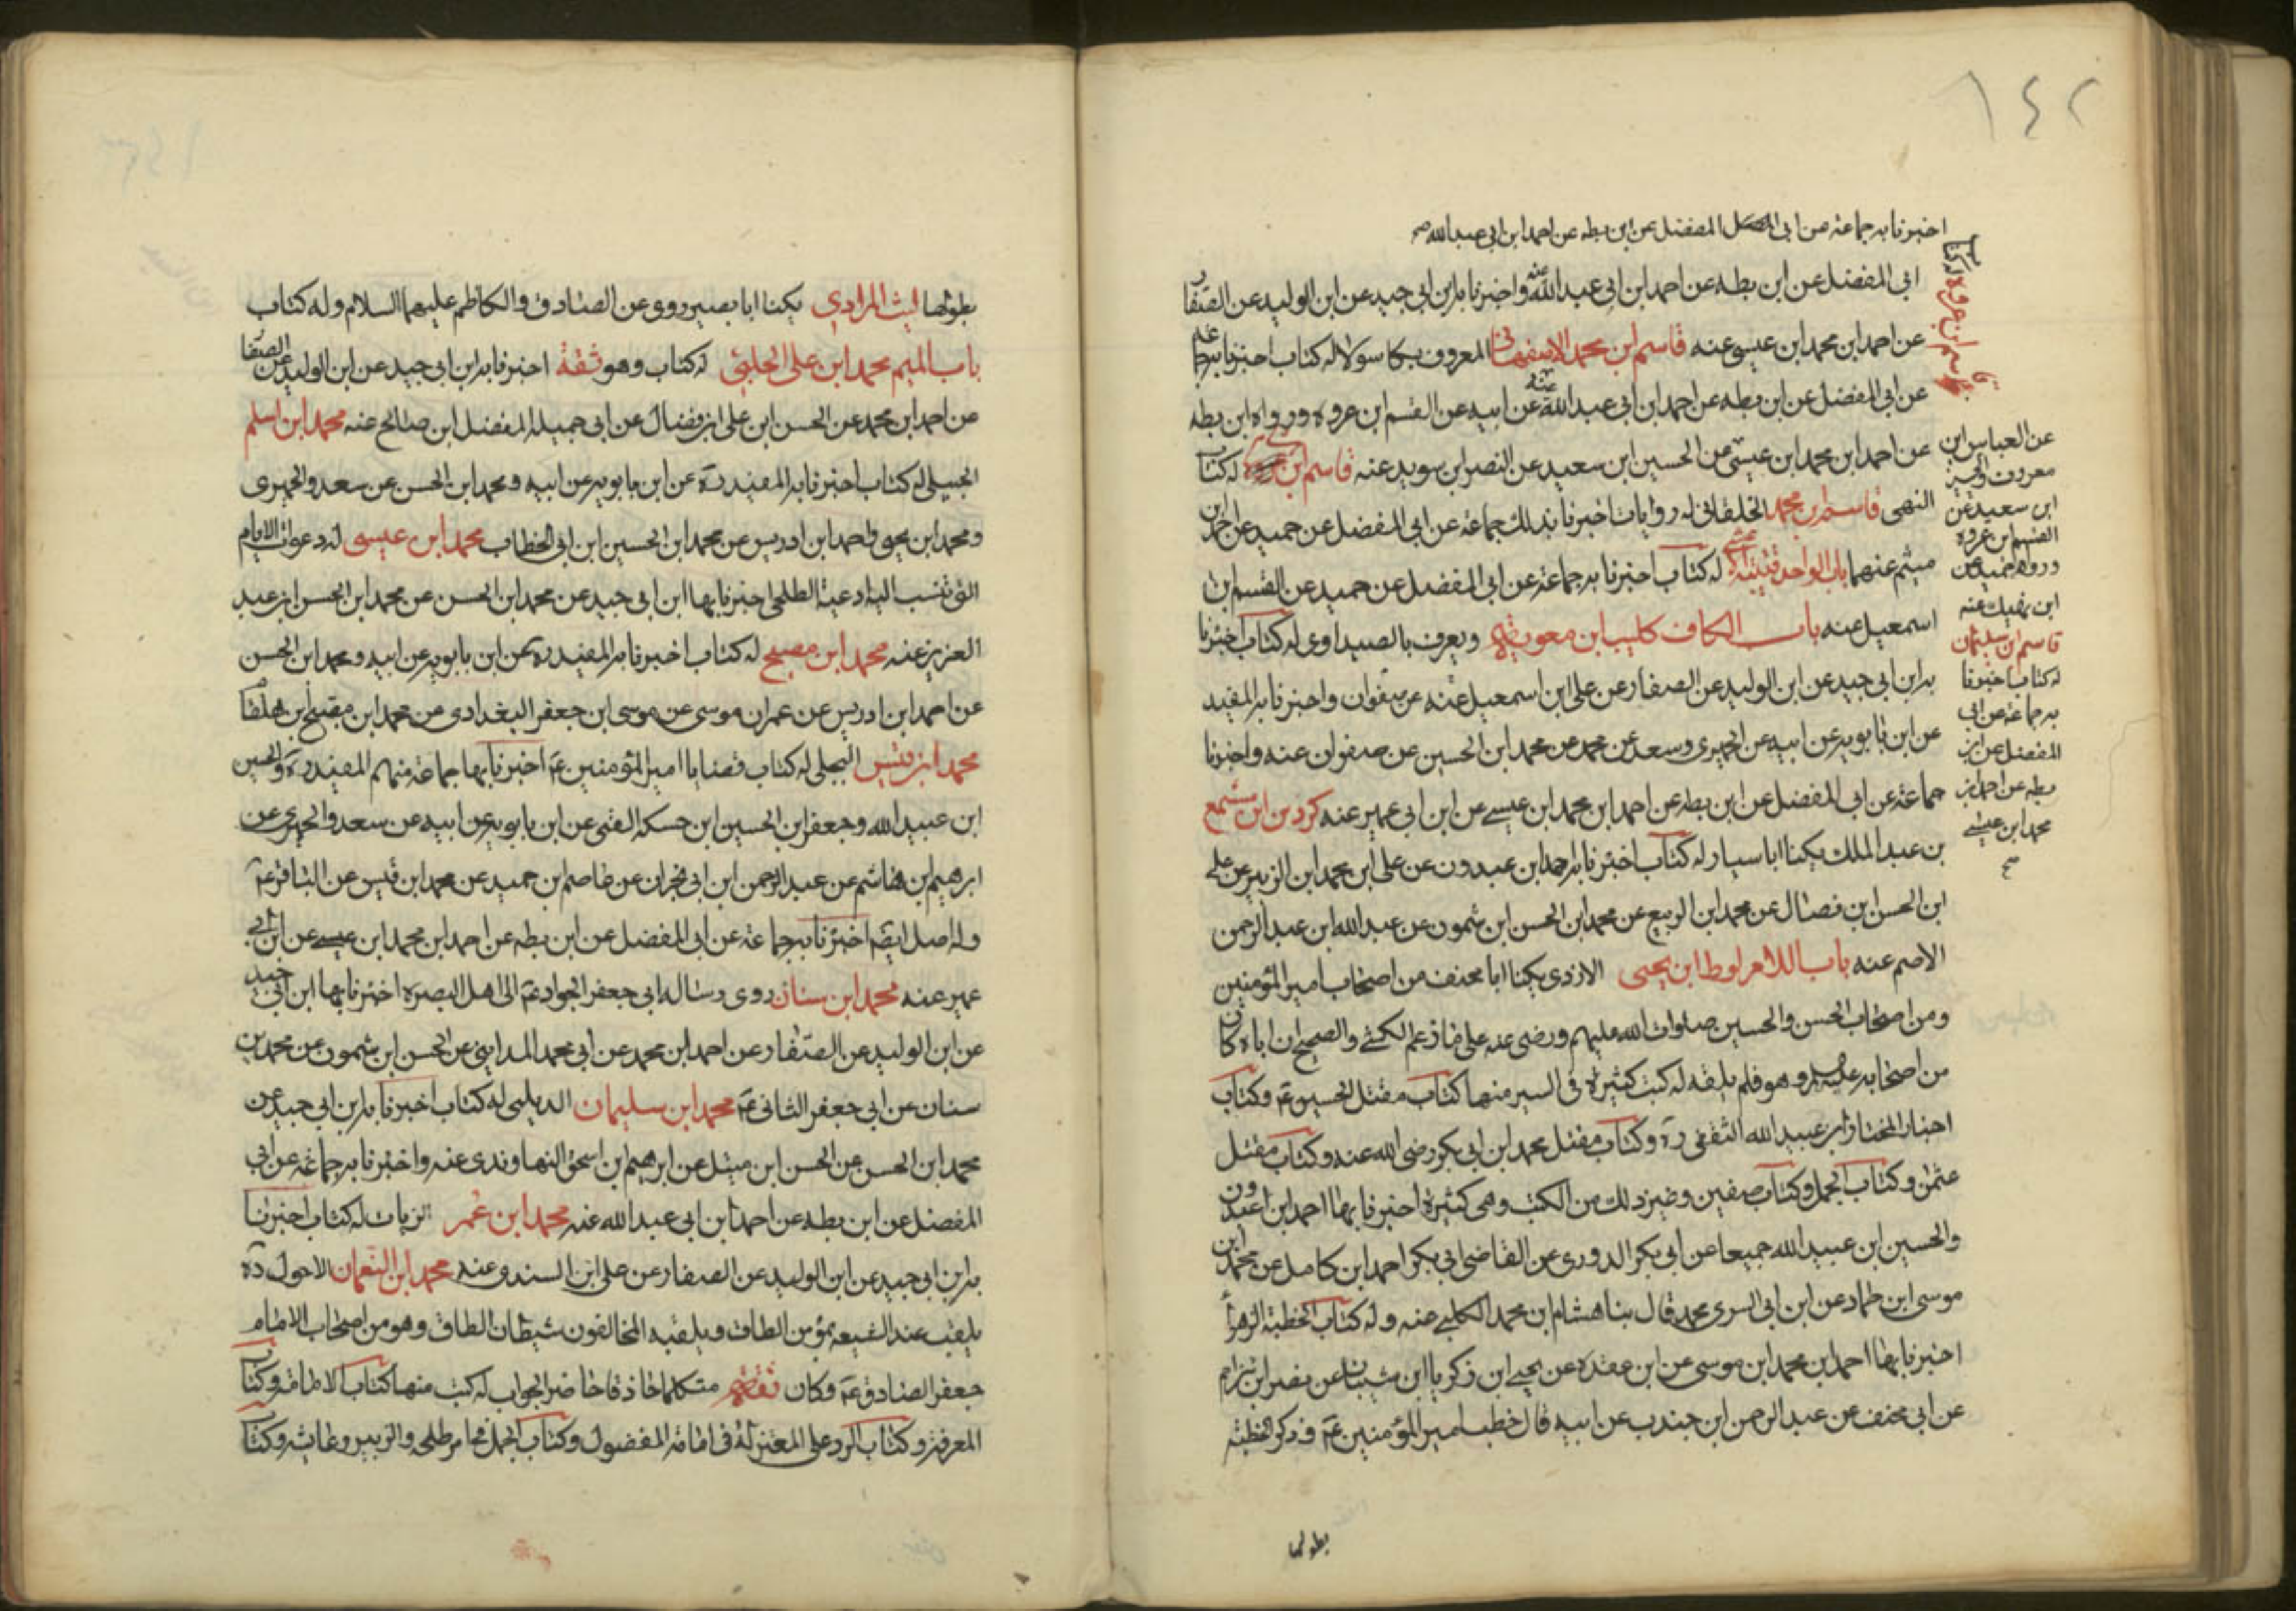 ١٤٢
اخبرنا به جماعة من ابى المفضل عن ابن بطه عن احمد ابن ابى عبد الله صح
ابى المفضل عن ابن بطه عن احمد ابن ابى عبد الله عنه واخبرنا به ابن ابى جيد عن ابن الوليد عن الصفار
عن احمد ابن محمد ابن عيسى عنه قاسم ابن محمد الاصفهانى المعروف بكاسولا له كتاب اخبرنا به
عن ابى المفضل عن ابن بطه عن احمد ابن ابى عبد الله عن ابيه عن القسم ابن عروه ورواه ابن بطه
عن احمد ابن محمد ابن عيسى عن الحسين ابن سعيد عن النصر ابن سويد عنه قاسم ابن له كتاب
النهمى قاسم ابن محمد الخلقانى له روايات اخبرنا بذلك جماعة عن ابى المفضل عن حميد عن احمد ابن
ميثم عنهما باب الواحد قتيبة له كتاب اخبرنا به جماعة عن ابى المفضل عن حميد عن القسم ابن
اسمعيل عنه باب الكاف كليب ابن معويه ويعرف بالصيداوى له كتاب اخبرنا
به ابن ابى جيد عن ابن الوليد عن الصفار عن على ابن اسمعيل عنه عن صفوان واخبرنا به المفيد
عن ابن بابويه عن ابيه عن الحميرى وسعد عن محمد عن محمد ابن الحسين عن صفوان عنه واخبرنا
جماعة عن ابى المفضل عن ابن بطه عن احمد ابن محمد ابن عيسى عن ابن ابى عمير عنه كردين ابن مسمع
بن عبد الملك يكنا ابا سيار له كتاب اخبرنا به احمد ابن عبدون عن على ابن محمد ابن الزبير عن على
ابن الحسن ابن فضال عن محمد ابن الربيع عن محمد ابن الحسن ابن شمون عن عبد الله ابن عبد الرحمن
الاصم عنه باب اللام لوط ابن يحيى الازدى يكنا ابا مخنف من اصحاب امير المؤمنين
ومن اصحاب الحسن والحسين صلوات الله عليهم ورضى عنه على ما زعم الكشى والصحيح ان اباه كان
من اصحابه عليه السلم وهو فلم يلقه له كتب كثيرة فى السير منها كتاب مقتل الحسين ع وكتاب
اخبار المختار ابن عبيد الله الثقفى ره وكتاب مقتل محمد ابن ابى بكر رضى الله عنه وكتاب مقتل
عثمن وكتاب الجمل وكتاب صفين وغير ذلك من الكتب وهى كثيرة اخبرنا بها احمد ابن عبدون
والحسين ابن عبيد الله جميعا عن ابى بكر الدورى عن القاضى ابى بكر احمد ابن كامل عن محمد ابن
موسى ابن حماد عن ابن ابى السرى محمد قال بنا هشام ابن محمد الكلبى عنه وله كتاب الخطبة الزهرا
اخبرنا بها احمد ابن محمد ابن موسى عن ابن عقده عن يحيى ابن زكريا ابن شيبان عن نصر ابن مزاحم
عن ابى مخنف عن عبد الرحمن ابن جندب عن ابيه قال خطب امير المؤمنين ع وذكر الخطبة
بطولها
عن العباس ابن
معروف والحسين
ابن سعيد عن
القسم ابن عروه
ورواه حميد عن
ابن نهيك عنه
قاسم ابن سليمان
له كتاب اخبرنا
به جماعة عن ابى
المفضل عن ابن
بطه عن احمد ابن
محمد ابن عيسى
بطولها ليث المرادى يكنا ابا بصير روى عن الصادق والكاظم عليهما السلام وله كتاب
باب الميم محمد ابن على الحلبى له كتاب وهو ثقة اخبرنا به ابن ابى جيد عن ابن الوليد عن الصفار
عن احمد ابن محمد عن الحسن ابن على ابن فضال عن ابى جميله المفضل ابن صالح عنه محمد ابن اسلم
الجبلى له كتاب اخبرنا به المفيد ره عن ابن بابويه عن ابيه ومحمد ابن الحسن عن سعد والحميرى
ومحمد ابن يحيى واحمد ابن ادريس عن محمد ابن الحسين ابن ابى الخطاب محمد ابن عيسى له دعوات الايام
التى تنسب اليه ادعية الطلحى اخبرنا بها ابن ابى جيد عن محمد ابن الحسن عن محمد ابن الحسن ابن عبد
العزيز عنه محمد ابن مصبح له كتاب اخبرنا به المفيد ره عن ابن بابويه عن ابيه ومحمد ابن الحسن
عن احمد ابن ادريس عن عمران موسى عن موسى ابن جعفر البغدادى عن محمد ابن مصبح ابن هلقا
محمد ابن قيس البجلى له كتاب قضايا امير المؤمنين ع اخبرنا بها جماعة منهم المفيد ره والحسين
ابن عبيد الله وجعفر ابن الحسين ابن حسكه القمى عن ابن بابويه عن ابيه عن سعد والحميرى عن
ابرهيم ابن هاشم عن عبد الرحمن ابن ابى نجران عن عاصم ابن حميد عن محمد ابن قيس عن الباقر ع
وله اصل ايضا اخبرنا به جماعة عن ابى المفضل عن ابن بطه عن احمد ابن محمد ابن عيسى عن ابن ابى
عمير عنه محمد ابن سنان روى رساله ابى جعفر الجواد ع الى اهل البصره اخبرنا بها ابن ابى جيد
عن ابن الوليد عن الصفار عن احمد ابن محمد عن ابى محمد المداينى عن الحسن ابن شمون عن محمد ابن
سنان عن ابى جعفر الثانى ع محمد ابن سليمان الديلمى له كتاب اخبرنا به ابن ابى جيد عن
محمد ابن الحسن عن الحسن ابن متيل عن ابرهيم ابن اسحق النهاوندى عنه واخبرنا به جماعة عن ابى
المفضل عن ابن بطه عن احمد ابن ابى عبد الله عنه محمد ابن عمر الزيات له كتاب اخبرنا
به ابن ابى جيد عن ابن الوليد عن الصفار عن على ابن السندى عنه محمد ابن النعمان الاحول ره
يلقب عند الشيعه بمؤمن الطاق ويلقبه المخالفون شيطان الطاق وهو من اصحاب الامام
جعفر الصادق ع وكان ثقة متكلما حاذقا حاضر الجواب له كتب منها كتاب الامامة وكتاب
المعرفة وكتاب الرد على المعتزلة فى امامة المفضول وكتاب الجمل فى امر طلحه والزبير وعايشه وكتاب